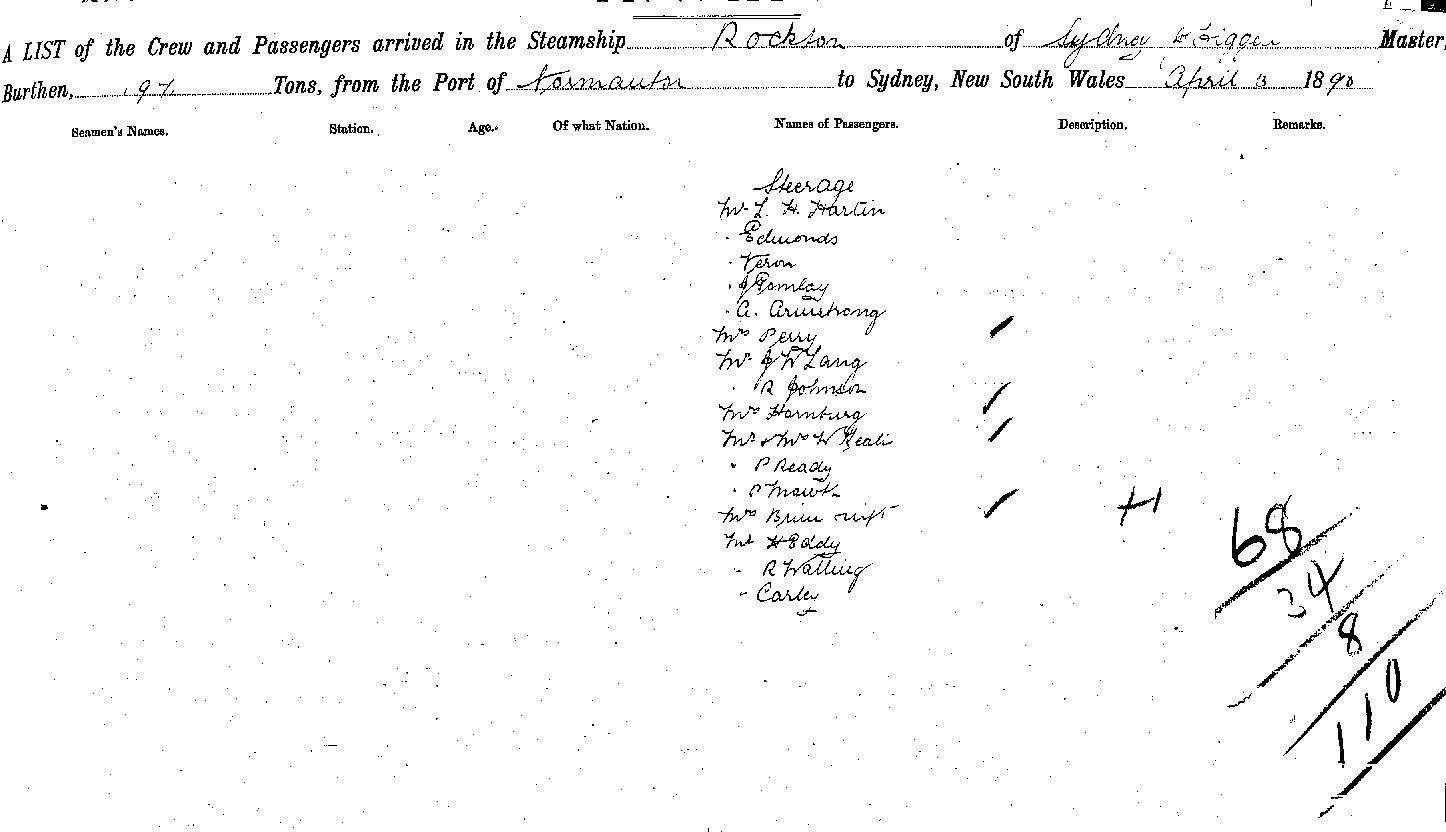 A LIST of the Crew and Passengers arrived in the Steamship Rockton of Sydney W Master,
Burthen, 197 Tons, from the Port of Normanton to Sydney, New South Wales April 3 1890
Seamen's Names. Station. Age. Of what Nation. Names of Passengers. Description. Remarks.
Steerage
Mr L. H. Hartin
" Edmonds
" Veron
" J Gomlay
" A. Armstrong
Mrs Perry
Mr J W Lang
" R Johnson
Mrs Hamburg
Mr & Mrs W
" P Ready
" P
Mrs
Mr H Eddy
" R Watling
" Carley
68
34
8
110